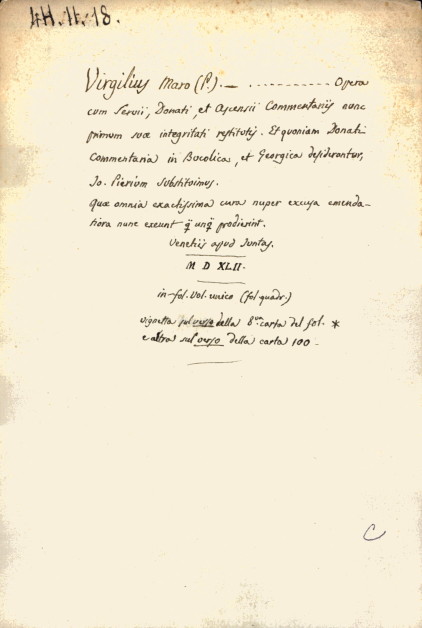 4H.11.18.
Virgilius Maro (P.). — - - - - - - - - - - - Opera
cum Servii, Donati, et Ascensii Commentariis nunc
primum suæ integritati restitutis. Et quoniam Donati
Commentaria in Bucolica, et Georgica desiderantur,
Jo. Pierium substituimus.
quæ omnia exactissima cura nuper excusa emenda-
tiora nunc exeunt q̃ unq̃ prodierint.
Venetiis apud Juntas.
M D XLII.
in-fol. Vol. unico (fol quadr.)
vignetta sul verso della 8va carta del fol. *
e altra sul verso della carta 100 -
C